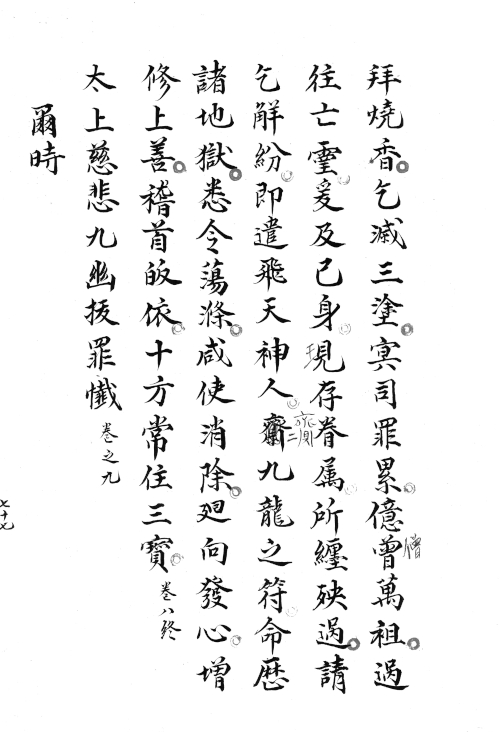 拜燒香乞滅三塗冥司罪累億曾萬祖過
往亡靈爰及己身現存眷属所纏殃過請
乞解紛即遣飛天神人齋九龍之符命歷
諸地獄悉令蕩滌咸使消除廻向發心增
修上善稽首皈依十方常住三寶 卷八終
太上慈悲九幽拔罪懺 卷之九
爾時
七十七